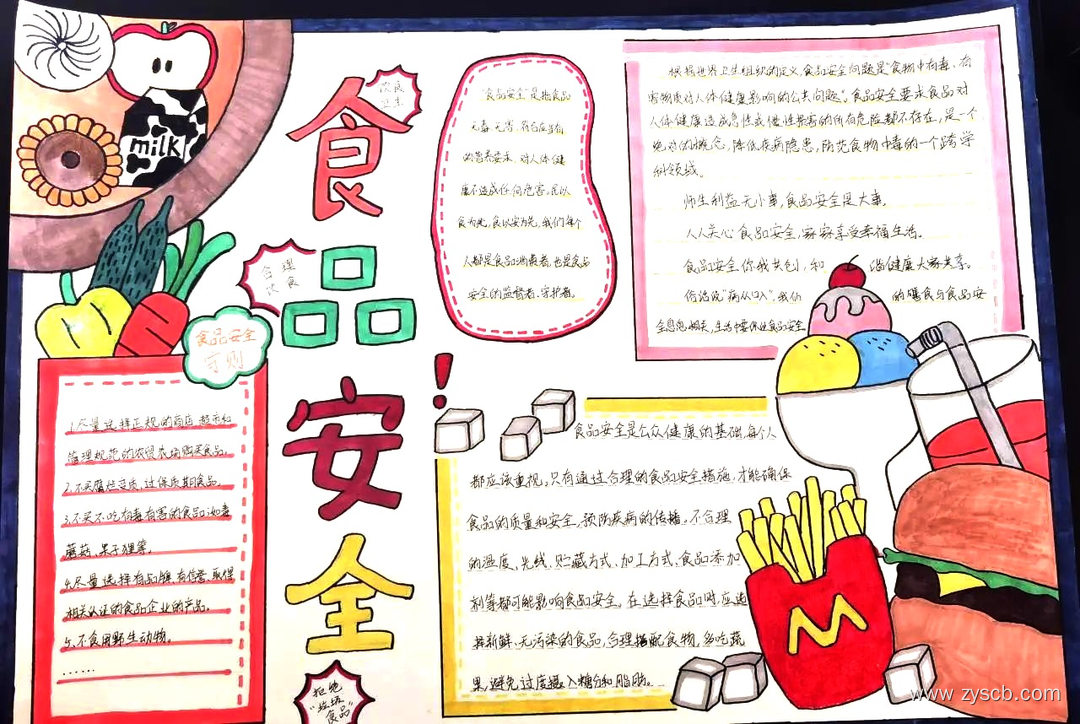 食品安全!
饮食
卫生
合理
饮食
拒绝
"垃圾
食品"
milk
食品安全
守则
1.尽量选择正规的商店、超市和
管理规范的农贸市场购买食品。
2.不买腐烂变质、过保质期食品。
3.不买不吃有毒有害的食品:如毒
蘑菇、果子狸等。
4.尽量选择有品牌、有信誉、取得
相关认证的食品企业的产品。
5.不食用野生动物。
......
"食品安全"是指食品
无毒、无害,符合应当有
的营养要求,对人体健
康不造成任何危害,民以
食为先,食以安为先,我们每个
人都是食品消费者,也是食品
安全的监督者、守护者。
根据世界卫生组织的定义,食品安全问题是"食物中有毒、有
害物质对人体健康影响的公共问题"。食品安全要求食品对
人体健康造成急性或慢性损害的所有危险都不存在,是一个
绝对的概念,降低疾病隐患,防范食物中毒的一个跨学
科领域。
师生利益无小事,食品安全是大事。
人人关心食品安全,家家享受幸福生活。
食品安全你我共创,和 谐健康大家共享。
俗话说"病从口入",我们 的膳食与食品安
全息息相关,生活中要保证食品安全
食品安全是公众健康的基础,每个人
都应该重视。只有通过合理的食品安全措施,才能确保
食品的质量和安全,预防疾病的传播。不合理
的温度、光线、贮藏方式、加工方式、食品添加
剂等都可能影响食品安全。在选择食品时,应选
择新鲜、无污染的食品,合理搭配食物,多吃蔬
果,避免过度摄入糖分和脂肪。
M
www.zyscb.com